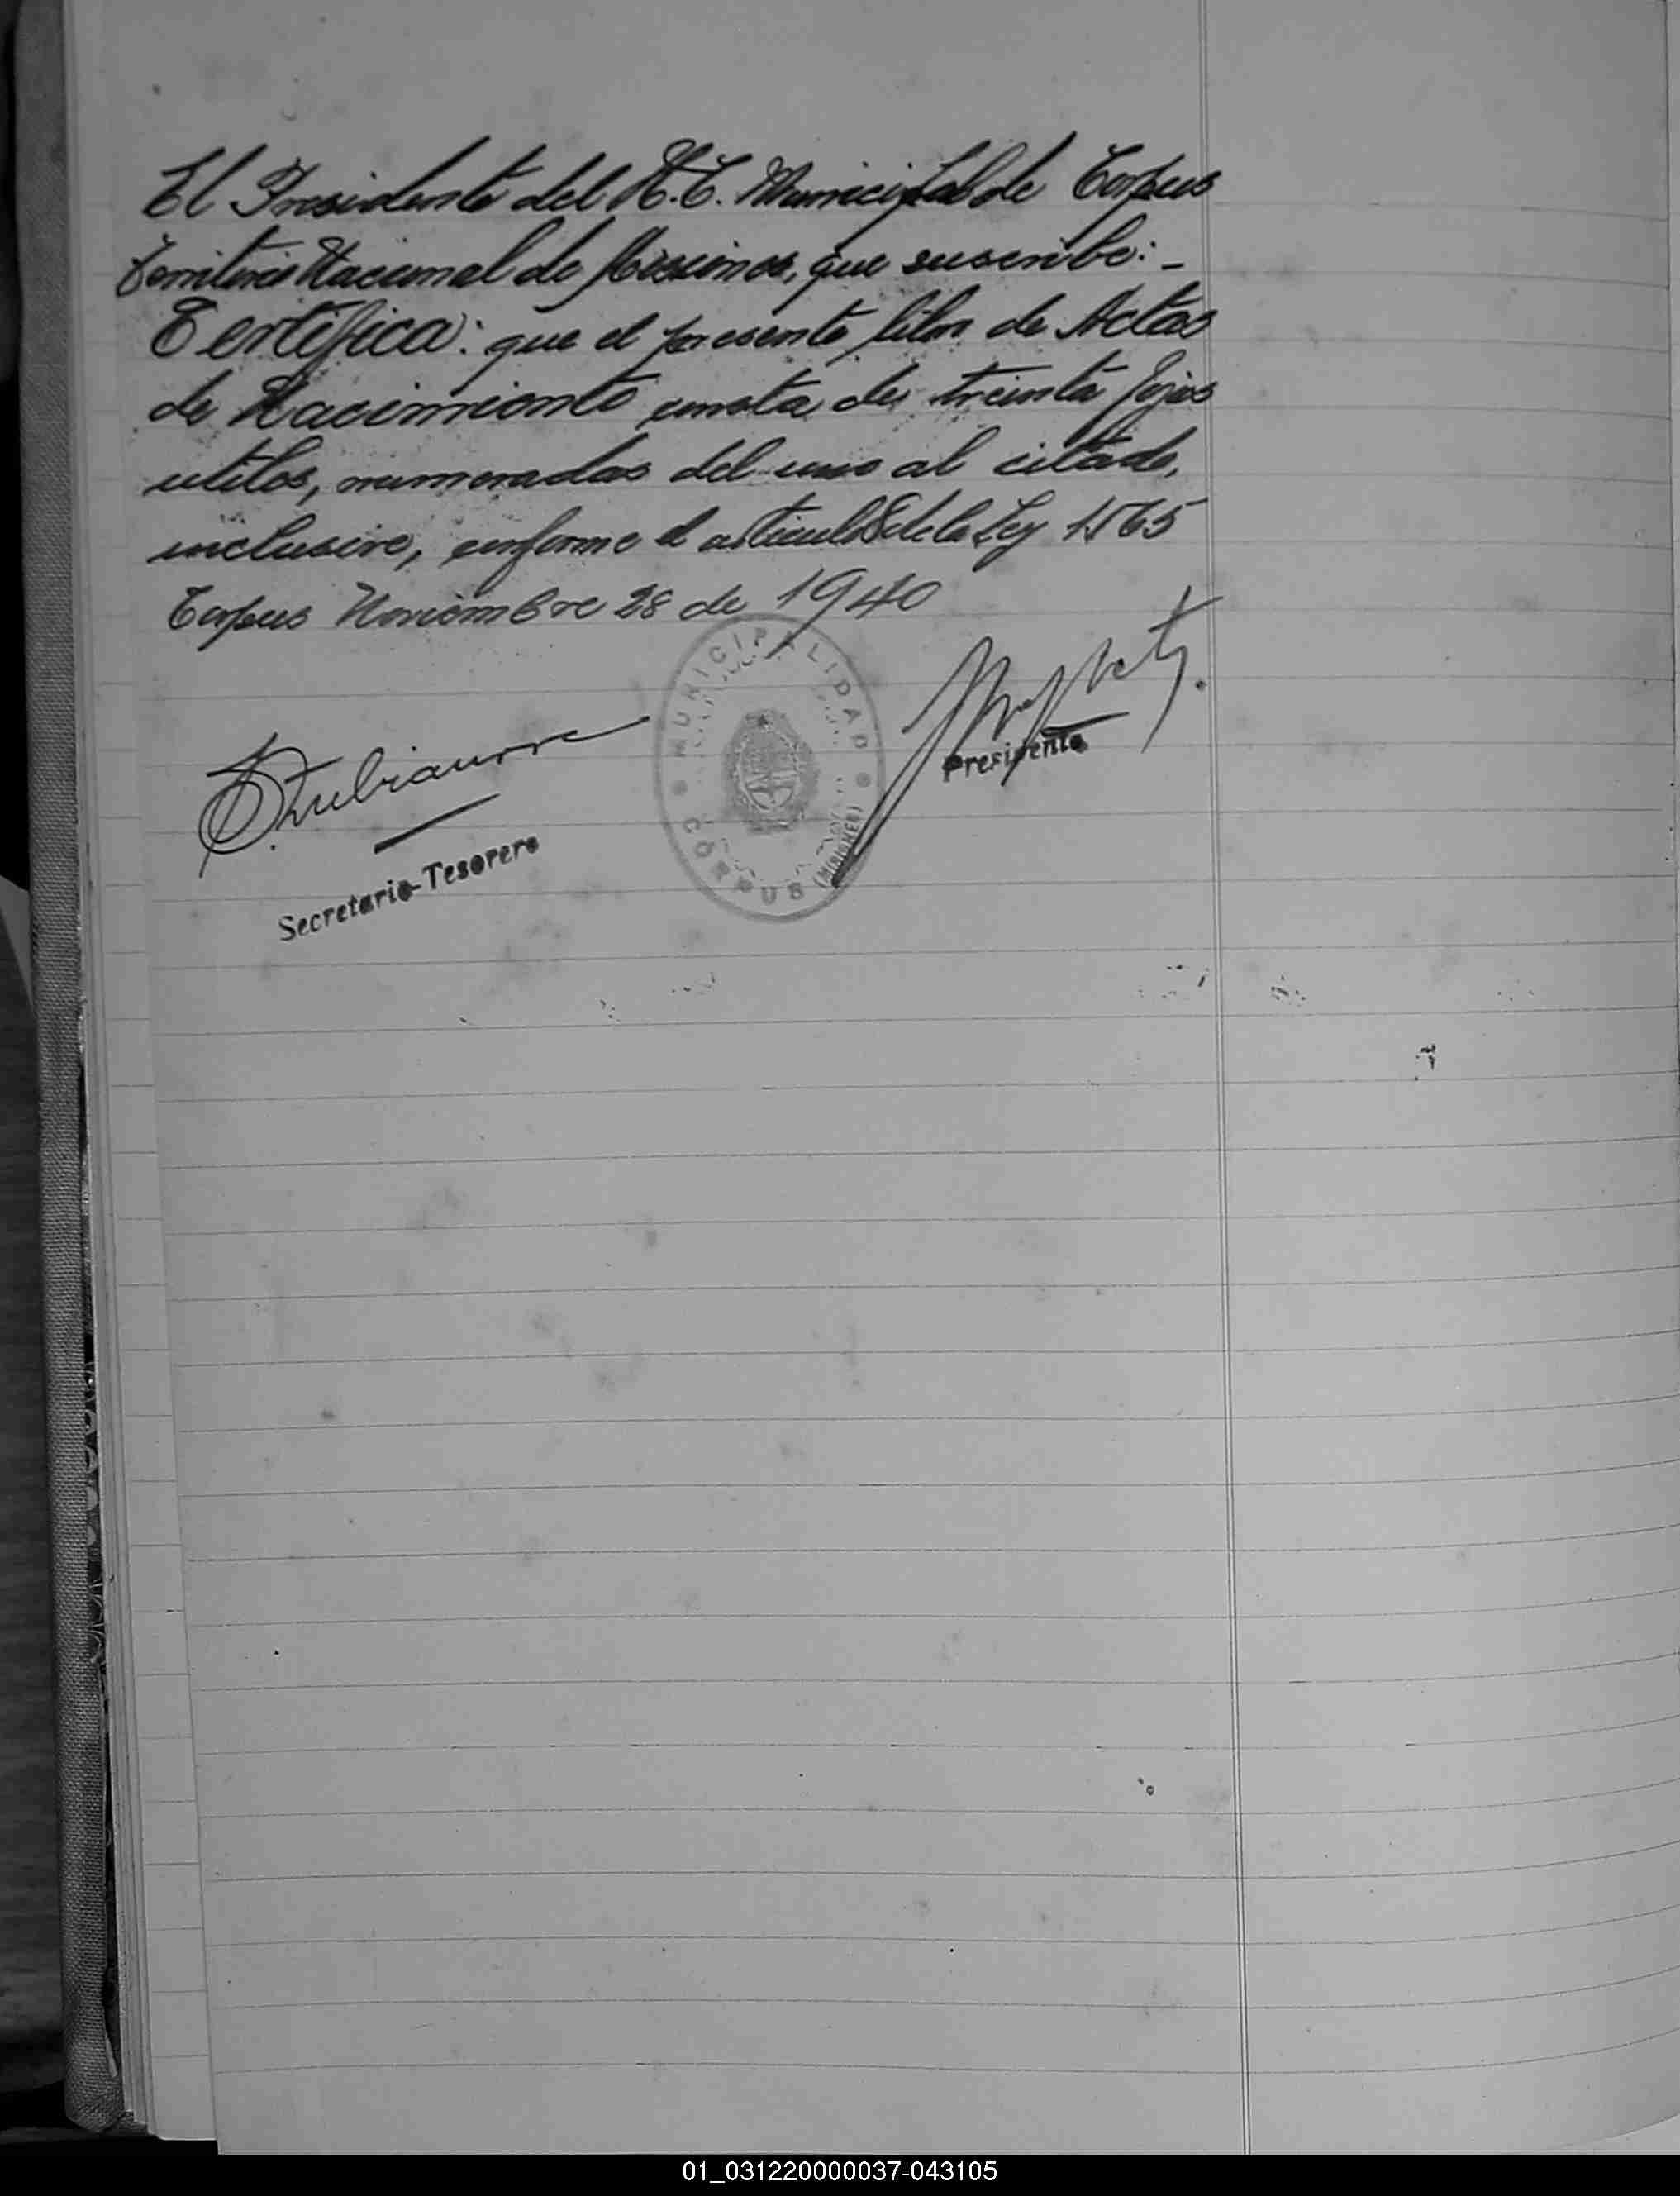 El Presidente del H.C. Municipal de Corpus
Territorio Nacional de Misiones, que suscribe:-
Certifica: que el presente libro de Actas
de Nacimiento consta de treinta fojas
utiles, numeradas del uno al citado,
inclusive, conforme el articulo 8 de la Ley 1565
Corpus Noviembre 28 de 1940
MUNICIPALIDAD
CORPUS (MISIONES)
Presidente
Secretario-Tesorero
01_031220000037-043105